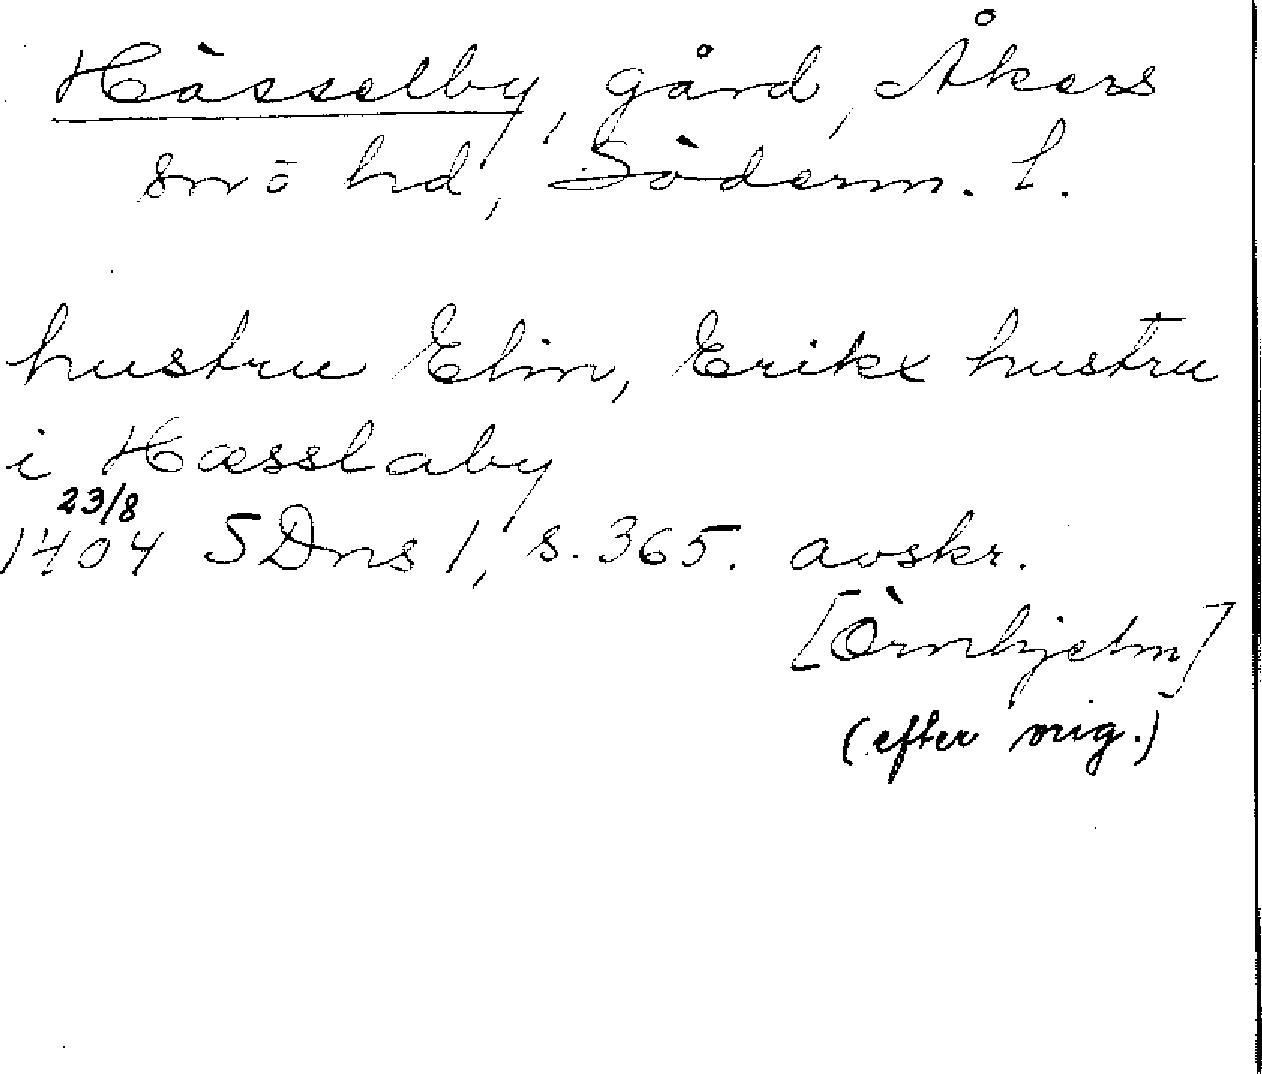 Hässelby, gård, Åkers
sn ö hd, Söderm. l.
hustru Elin, Erikx hustru
i Hæsslaby
23/8
1404 SDns 1, s. 365. avskr.
[Örnhjelm]
(efter orig.)